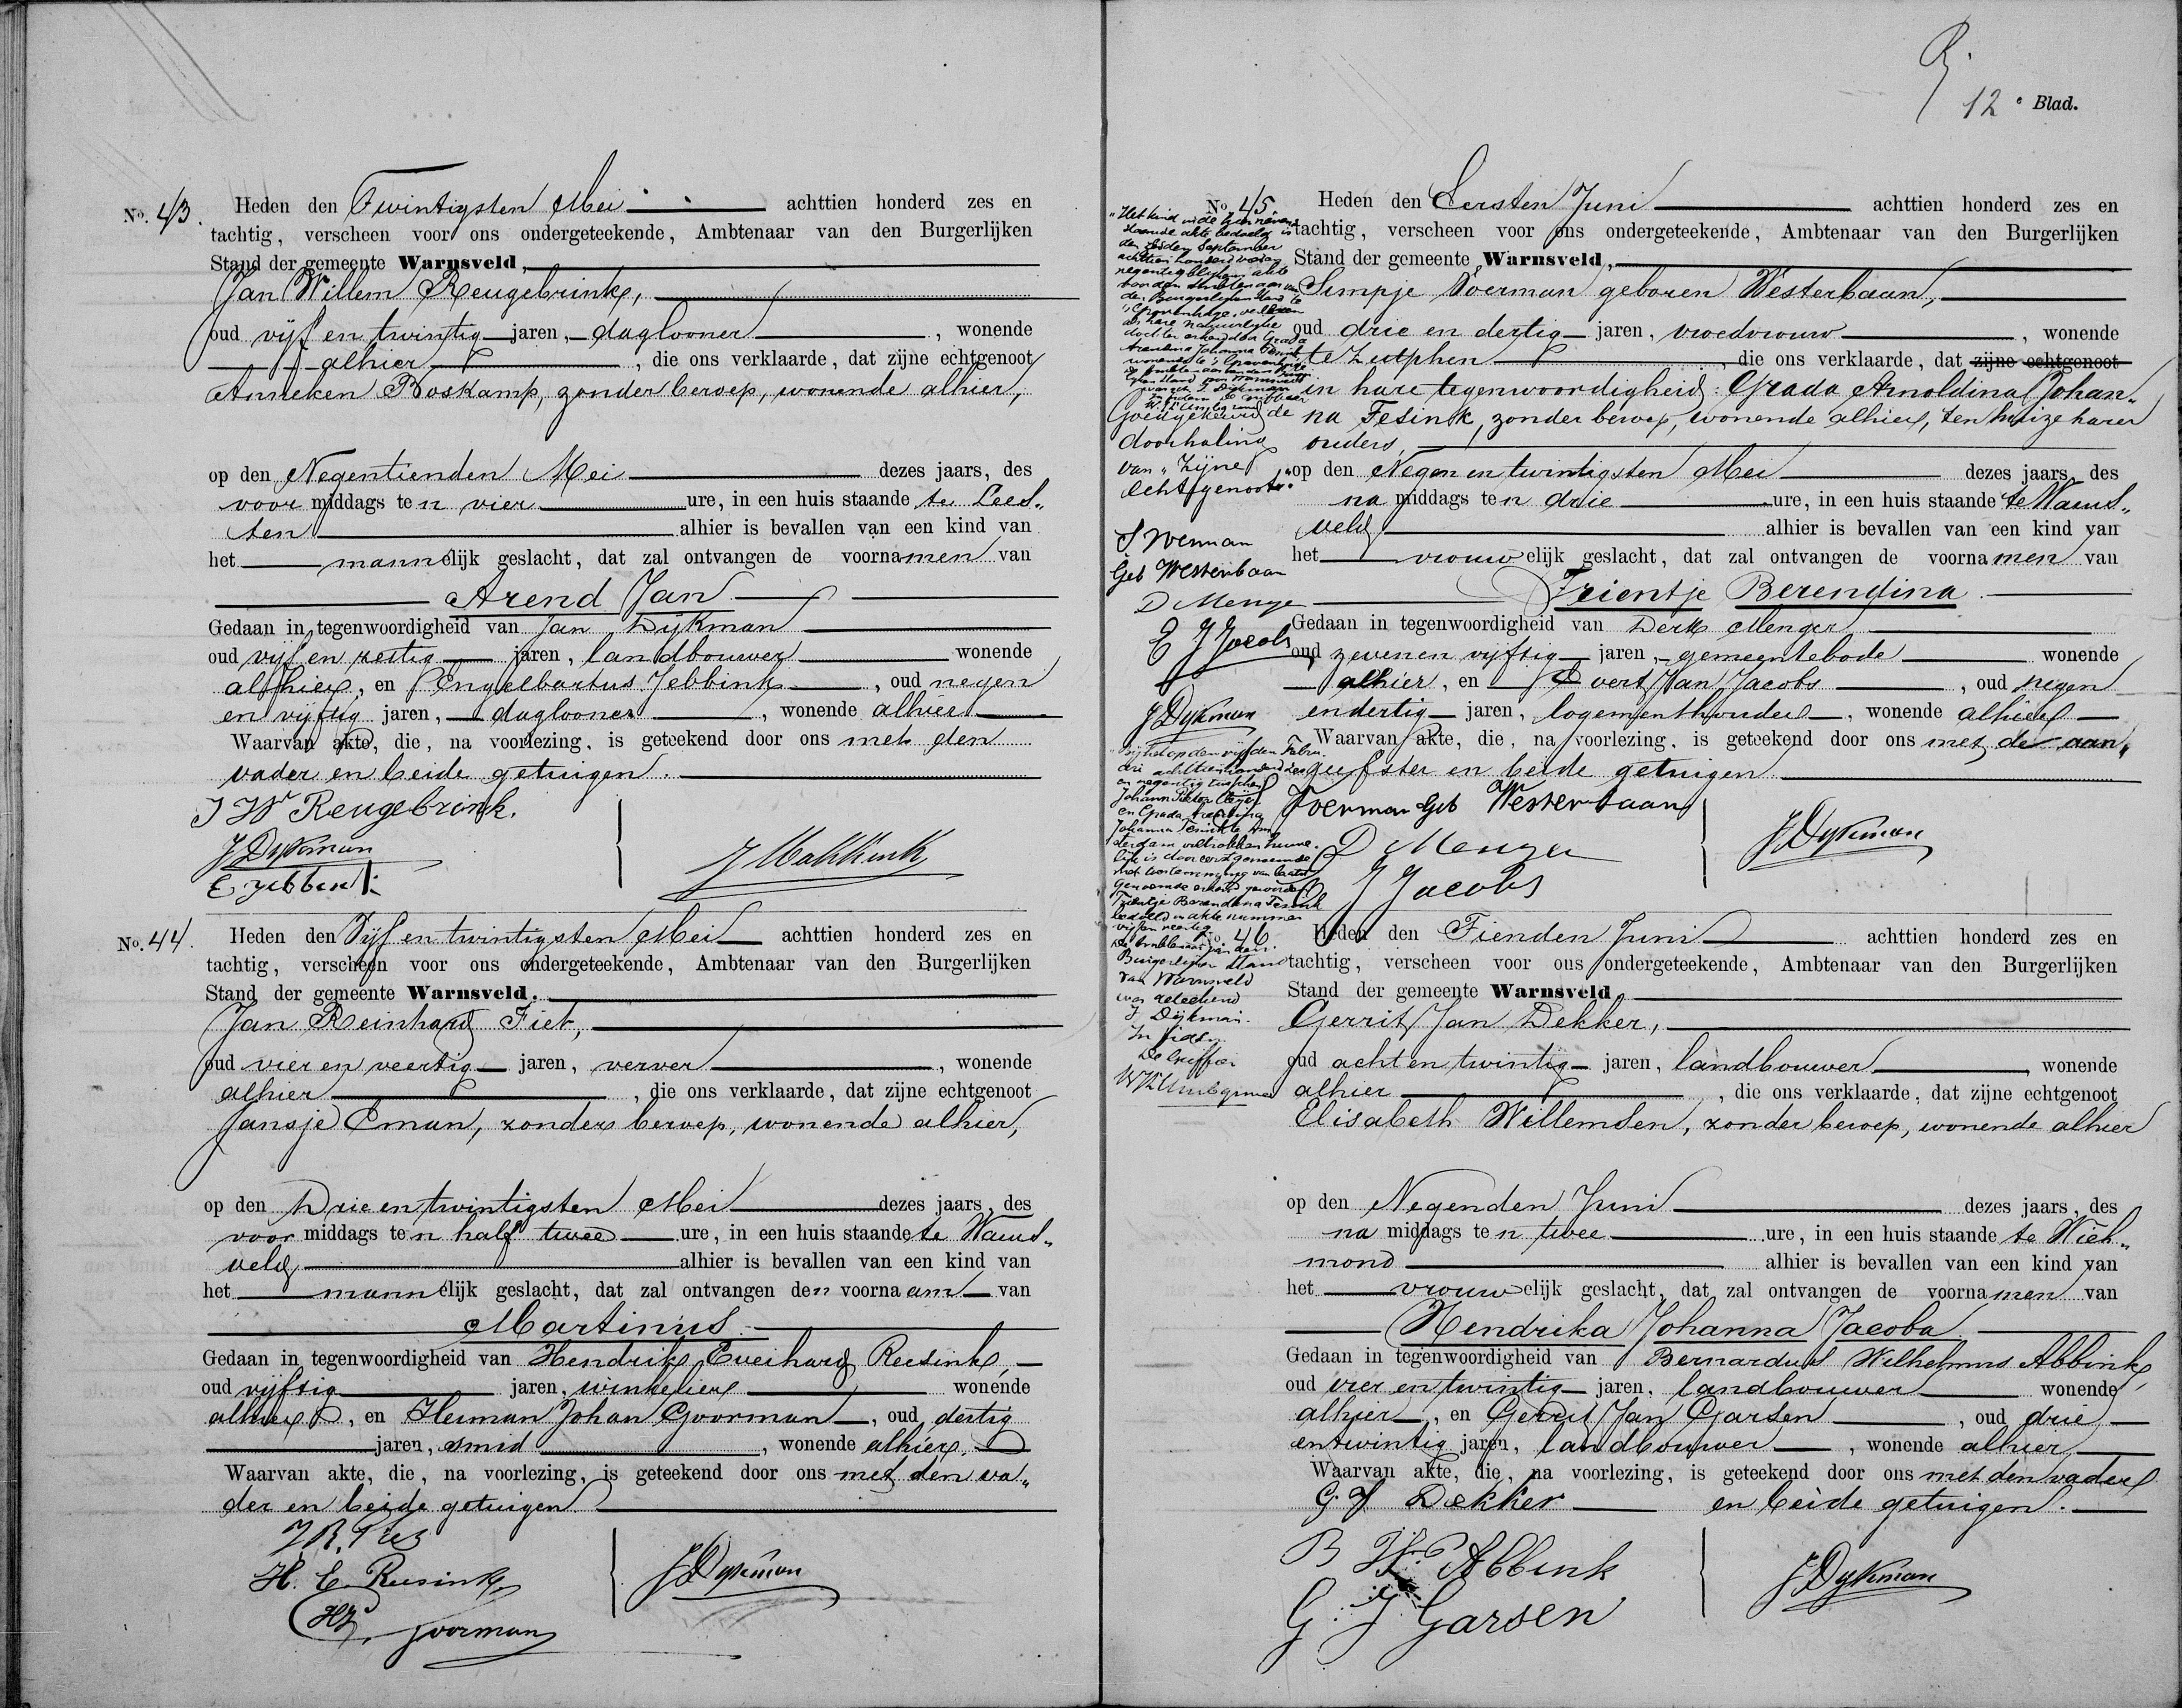 No. 43.
Heden den Twintigsten Mei achttien honderd zes en
tachtig, verscheen voor ons ondergeteekende, Ambtenaar van den Burgerlijken
Stand der gemeente Warnsveld,
Jan Willem Reugebrink,
oud vijf en twintig jaren, daglooner, wonende
alhier, die ons verklaarde, dat zijne echtgenoot
Anneken Boskamp, zonder beroep, wonende alhier,
op den Negentienden Mei dezes jaars, des
voor middags ten vier ure, in een huis staande te Lees„
ten alhier is bevallen van een kind van
het mannelijk geslacht, dat zal ontvangen de voornamen van
Arend Jan
Gedaan in tegenwoordigheid van Jan Dijkman
oud vijf en zestig jaren, landbouwer wonende
alhier, en Engelbartus Jebbink, oud negen
en vijftig jaren, daglooner, wonende alhier
Waarvan akte, die, na voorlezing, is geteekend door ons met den
vader en beide getuigen.
J W Reugebrink.
J Dykman
E Jebbink
J Makkink
No. 44.
Heden den Vijf en twintigsten Mei achttien honderd zes en
tachtig, verscheen voor ons ondergeteekende, Ambtenaar van den Burgerlijken
Stand der gemeente Warnsveld.
Jan Reinhard Fiet,
oud vier en veertig jaren, verver, wonende
alhier, die ons verklaarde, dat zijne echtgenoot
Jansje Eman, zonder beroep, wonende alhier,
op den Drie en twintigsten Mei dezes jaars, des
voor middags ten half twee ure, in een huis staande te Warns„
veld alhier is bevallen van een kind van
het mannelijk geslacht, dat zal ontvangen den voornaam van
Martinus.
Gedaan in tegenwoordigheid van Hendrik Everhard Reesink,
oud vijftig jaren, winkelier wonende
alhier, en Herman Johan Goorman, oud dertig
jaren, smid, wonende alhier,
Waarvan akte, die, na voorlezing, is geteekend door ons met den va„
der en beide getuigen
H. E. Reesink
HJ Goorman
J Dykman
12e Blad.
No. 45.
Heden den Eersten Juni achttien honderd zes en
tachtig, verscheen voor ons ondergeteekende, Ambtenaar van den Burgerlijken
Stand der gemeente Warnsveld,
Simpje Voerman geboren Westerbaan,
oud drie en dertig jaren, vroedvrouw, wonende
te Zutphen, die ons verklaarde, dat zijne echtgenoot
in hare tegenwoordigheid Grada Arnoldina Johan„
na Tesink, zonder beroep, wonende alhier, ten huize harer
ouders,
op den Negen en twintigsten Mei dezes jaars, des
na middags ten drie ure, in een huis staande te Warns„
veld alhier is bevallen van een kind van
het vrouwelijk geslacht, dat zal ontvangen de voornamen van
Trientje Berendina
Gedaan in tegenwoordigheid van Derk Menger
oud zeven en vijftig jaren, gemeentebode wonende
alhier, en Evert Jan Jacobs, oud negen
en dertig jaren, logementhouder, wonende alhier
Waarvan akte, die, na voorlezing, is geteekend door ons met de aan„
geefster en beide getuigen
Voerman Geb Westerbaan
D Menger
J Jacobs
J Dykman
Goedgekeurd de
doorhaling
van „zijne
echtgenoot".
S Voerman
Geb Westerbaan
D Menger
E J Jacobs
J Dykman
Bijhuwelijk op den vijfden Febru
ari achttienhonderd zes
en negentig tusschen
en Grada Arnoldina
Johanna Tesink te Am
sterdam voltrokken huwe
lijk is door eerstgenoemde
met toestemming van laatst
genoemde erkend geworden
Trientje Berendina Tesink
bedoeld in akte nummer
vijf en veertig.
De Ambtenaar van den
Burgerlijken Stand
van Warnsveld
was geteekend
J Dijkman.
De Griffier
No. 46
Heden den Tienden Juni achttien honderd zes en
tachtig, verscheen voor ons ondergeteekende, Ambtenaar van den Burgerlijken
Stand der gemeente Warnsveld,
Gerrit Jan Dekker,
oud acht en twintig jaren, landbouwer wonende
alhier, die ons verklaarde, dat zijne echtgenoot
Elisabeth Willemsen, zonder beroep, wonende alhier
op den Negenden Juni dezes jaars, des
na middags ten twee ure, in een huis staande te Wich„
mond alhier is bevallen van een kind van
het vrouwelijk geslacht, dat zal ontvangen de voornamen van
Hendrika Johanna Jacoba
Gedaan in tegenwoordigheid van Bernardus Wilhelmus Abbink,
oud vier en twintig jaren, landbouwer wonende
alhier, en Gerrit Jan Garsen, oud drie
en twintig jaren, landbouwer, wonende alhier,
Waarvan akte, die, na voorlezing, is geteekend door ons met den vader
G. J Dekker en beide getuigen.
B W. Abbink
G. J Garsen
J Dykman